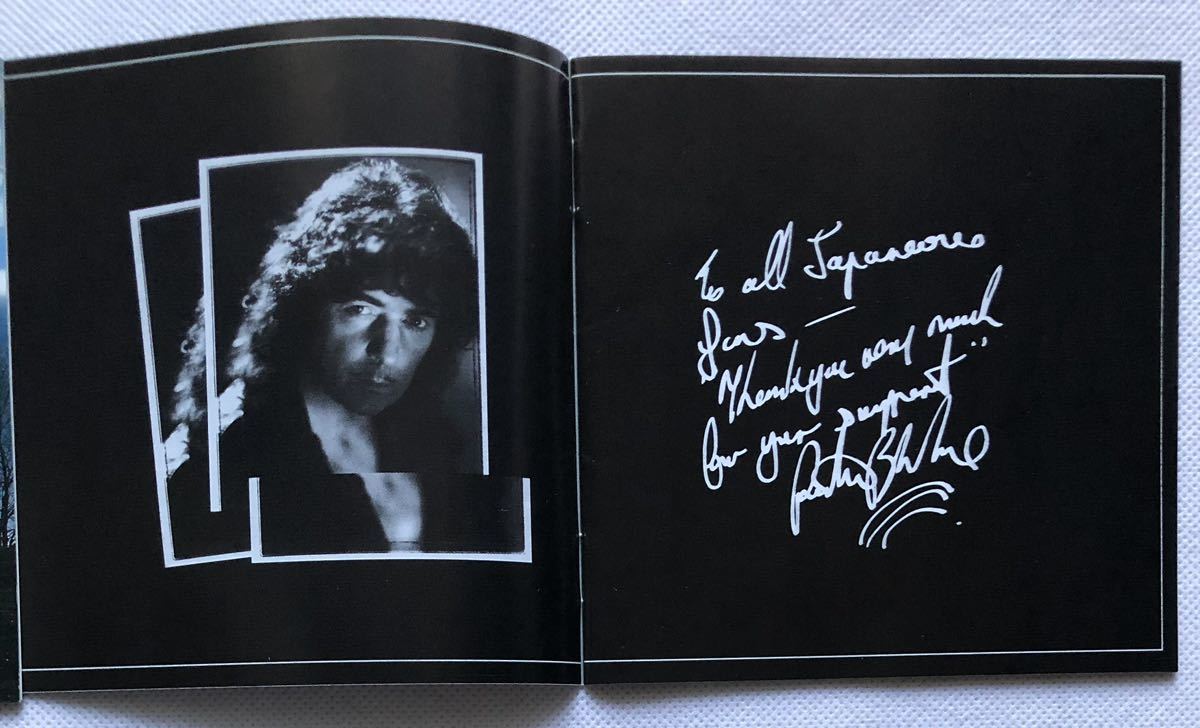 To all Japanese
fans —
"Thank you very much
for your support"